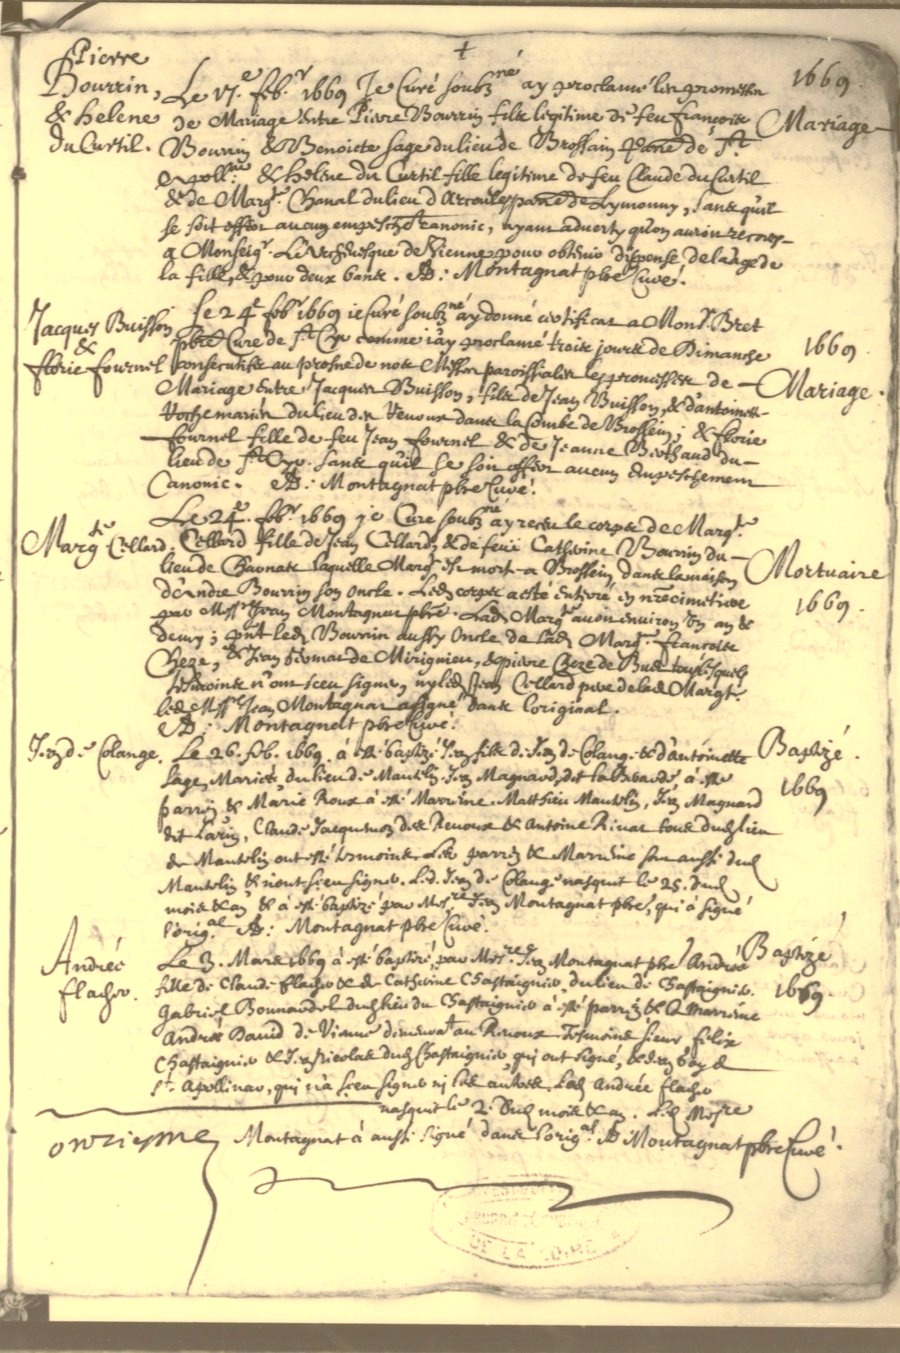 +
Pierre
Bourrin,
& helene
du Curtil.
Le 17.e feb.r 1669 Je Curé soubzné ay proclamé les promesses
de Mariage entre Pierre Bourrin fils legitime de feu françois
Bourrin & Benoicte sage du lieu de Brossain pbrie de St
Apollire & helene du Curtil fille legitime de feu Claude du Curtil
& de Margte Chanal du lieu d'Arcoules parre de Lymonny, sans quil
se soit offert aucun empeschet canonic, ayant adverty qu'on auroit recours
a Monseigr. L'Archevesque de Vienne pour obtenir dispense de laage de
la fille, & pour deux bans. AB: Montagnat pbre Curé.
1669
Mariage
Jacques Buisson
&
florie fournel
Le 24e febr 1669 ie Curé soubzné ay donné certificat a Monsr. Bret
pbre Cure de St Cyr comme i'ay proclamé trois jours de Dimanche
consecutifs au prosne de nos Messes paroissiales les promesses de
Mariage entre Jacques Buisson, fils de Jean Buisson, & d'antoinette
Rochemarin du lieu de Renoux dans la Combe de Brossein; & florie
fournel fille de feu Jean fournel & de Jeanne Berthaud du
lieu de St Cyr. sans quil se soit offert aucun empeschement
Canonic. AB: Montagnat pbre Curé.
1669
Mariage.
Margte Cellard.
Le 24e. febr. 1669 je Cure soubzné ay receu le corps de Margte.
Cellard fille de Jean Cellard & de feüe Catherine Bourrin du
lieu de Charnas laquelle Margte est mort a Brossein dans la maison
d'Andre Bourrin son oncle. Led corps a esté enterré en nre cimetiere
par Messr Jean Montagnat pbre. Lad. Margte avoit environ un an &
demy; pnt led Bourrin aussy oncle de lad Margte. françois
Cheze, & Jean de Mirignieu, & pierre Cheze de tous lesquels
tesmoins n'ont sceu signer, ny led Jean Cellard pere de lad Margt.
led Messr Jean Montagnat a signé dans l'original.
AB: Montagnat pbre Curé.
Mortuaire
1669.
Jean de Colange.
Le 26. feb. 1669. à esté baptizé Jean fils de Jean de Colange & d'antoinette
sage, Mariés du lieu de Mantelin. Jean Magnard, dit à esté
parrin & Marie Roux à esté Marrine. Matthieu Mantelin, Jean Magnard
dit Larin, Claude Jacquemoz des Renoux & antoine Rivat tous dud lieu
de Mantelin ont esté tesmoins. Les parrin & Marrine sont aussi dud
Mantelin & n'ont sceu signer. Led. Jean de Colange nasquit le 25. dud
mois & an & a esté baptizé par Messre Jean Montagnat pbre, qui à signé
l'orig.al AB: Montagnat pbre Curé.
Baptizé.
1669
Andrée
flacher.
Le 3. Mars 1669 à esté baptizée, par Messre Jean Montagnat pbre Andrée
fille de Claude flacher & de Catherine Chastaignier, du lieu de Chastaignier.
Gabriel Bonnardel dud lieu du Chastaignier à esté parrin & Marrine
Andrée David de Vienne demeurat au Renoux. Tesmoins sieur felix
Chastaignier & Jean Nicolas dud Chastaignier, qui ont signé, & Jean d
St. Apollinar, qui n'a sceu signer nj les autres. Lad Andrée flacher
nasquit le 2. dud mois & an. Led Messre
Montagnat à aussi signé dans l'orig.al AB Montagnat pbre Curé.
Baptizé
1669.
onziesme